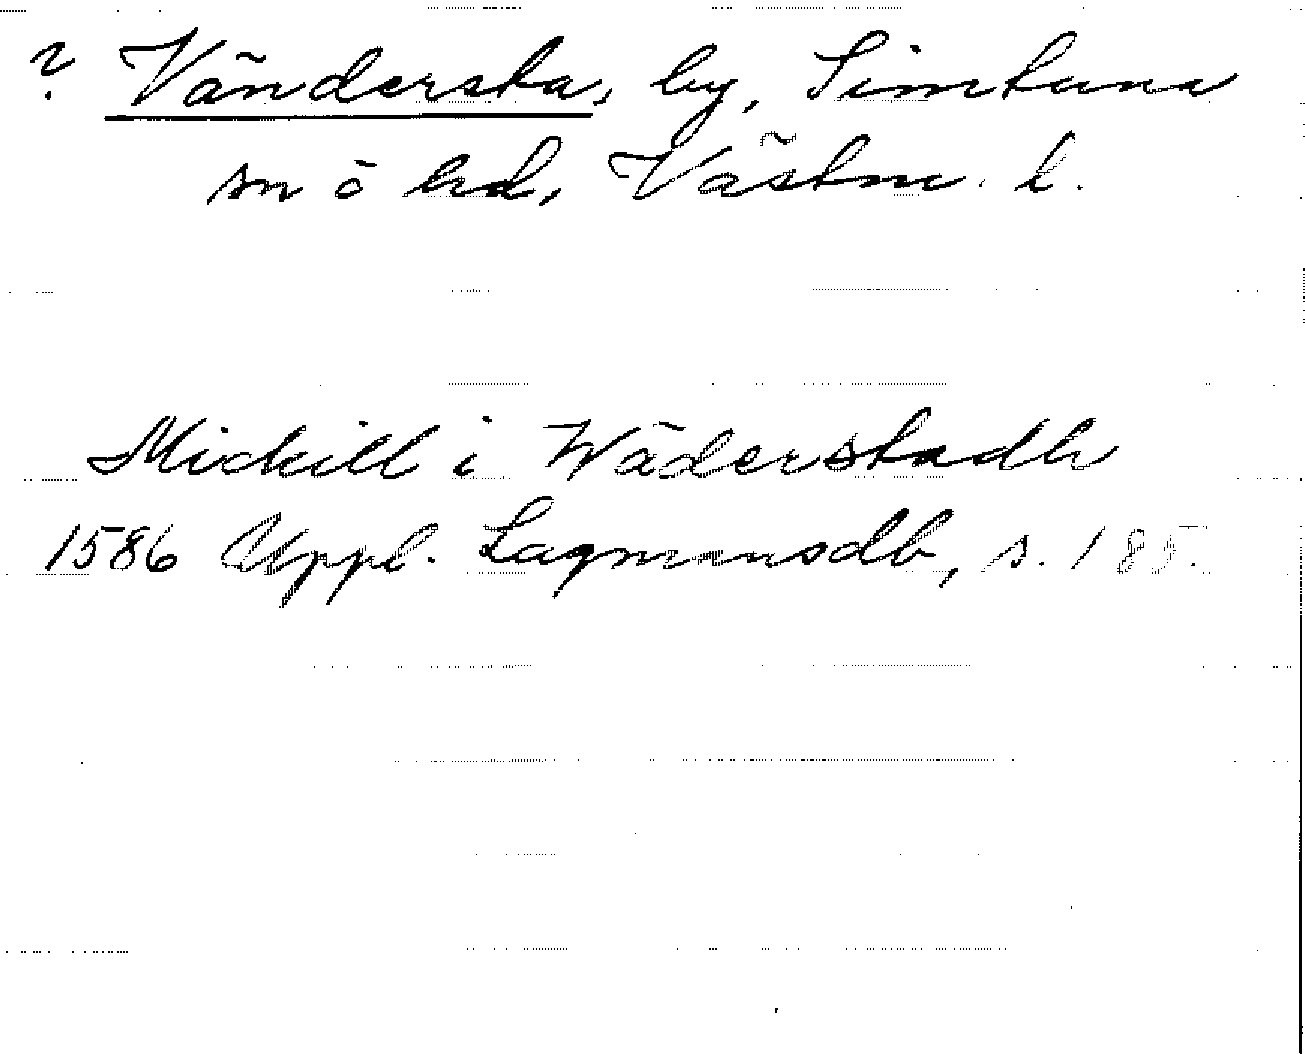 ? Vändersta, by, Simtuna
sn o hd, Västm. l.
Mickill i Wäderstadh
1586 Uppl. Lagmansdb, s. 185.